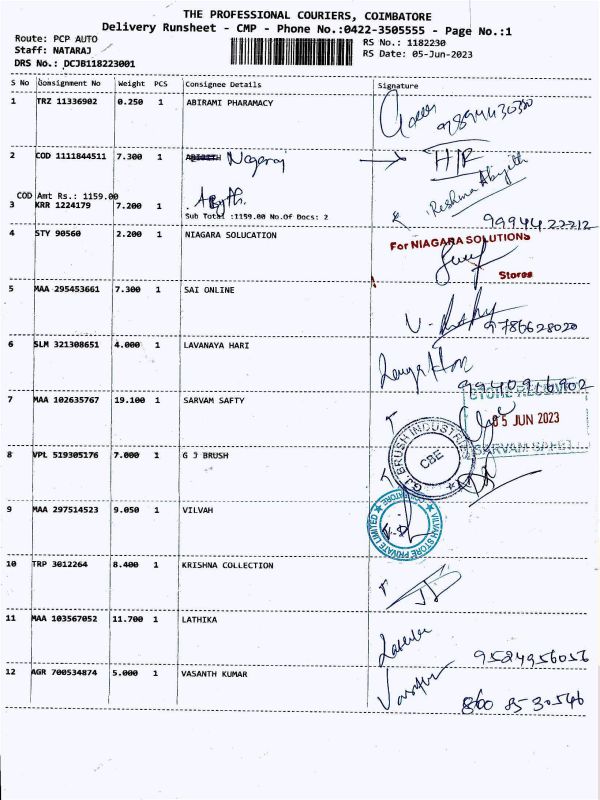 THE PROFESSIONAL COURIERS, COIMBATORE
Delivery Runsheet - CMP - Phone No.:0422-3505555 - Page No.:1
Route: PCP AUTO
Staff: NATARAJ
DRS No.: DCJB118223001
RS No.: 1182230
RS Date: 05-Jun-2023
S No Consignment No Weight PCS Consignee Details Signature
1 TRZ 11336902 0.250 1 ABIRAMI PHARAMACY
2 COD 1111844511 7.300 1 Nagaraj H/R
COD Amt Rs.: 1159.00
Reshma Abijith
3 KRR 1224179 7.200 1 Abijith
Sub Total :1159.00 No.Of Docs: 2
9994422212
4 STY 90560 2.200 1 NIAGARA SOLUCATION
For NIAGARA SOLUTIONS
Stores
5 MAA 295453661 7.300 1 SAI ONLINE
9786628020
6 SLM 321308651 4.000 1 LAVANAYA HARI
9940916902
7 MAA 102635767 19.100 1 SARVAM SAFTY
05 JUN 2023
8 VPL 519305176 7.000 1 G J BRUSH
G.J. BRUSH INDUSTRIES
CBE
9 MAA 297514523 9.050 1 VILVAH
VILVAH STORE PRIVATE LIMITED
10 TRP 3012264 8.400 1 KRISHNA COLLECTION
11 MAA 103567052 11.700 1 LATHIKA
9524956056
12 AGR 700534874 5.000 1 VASANTH KUMAR
860 8530546